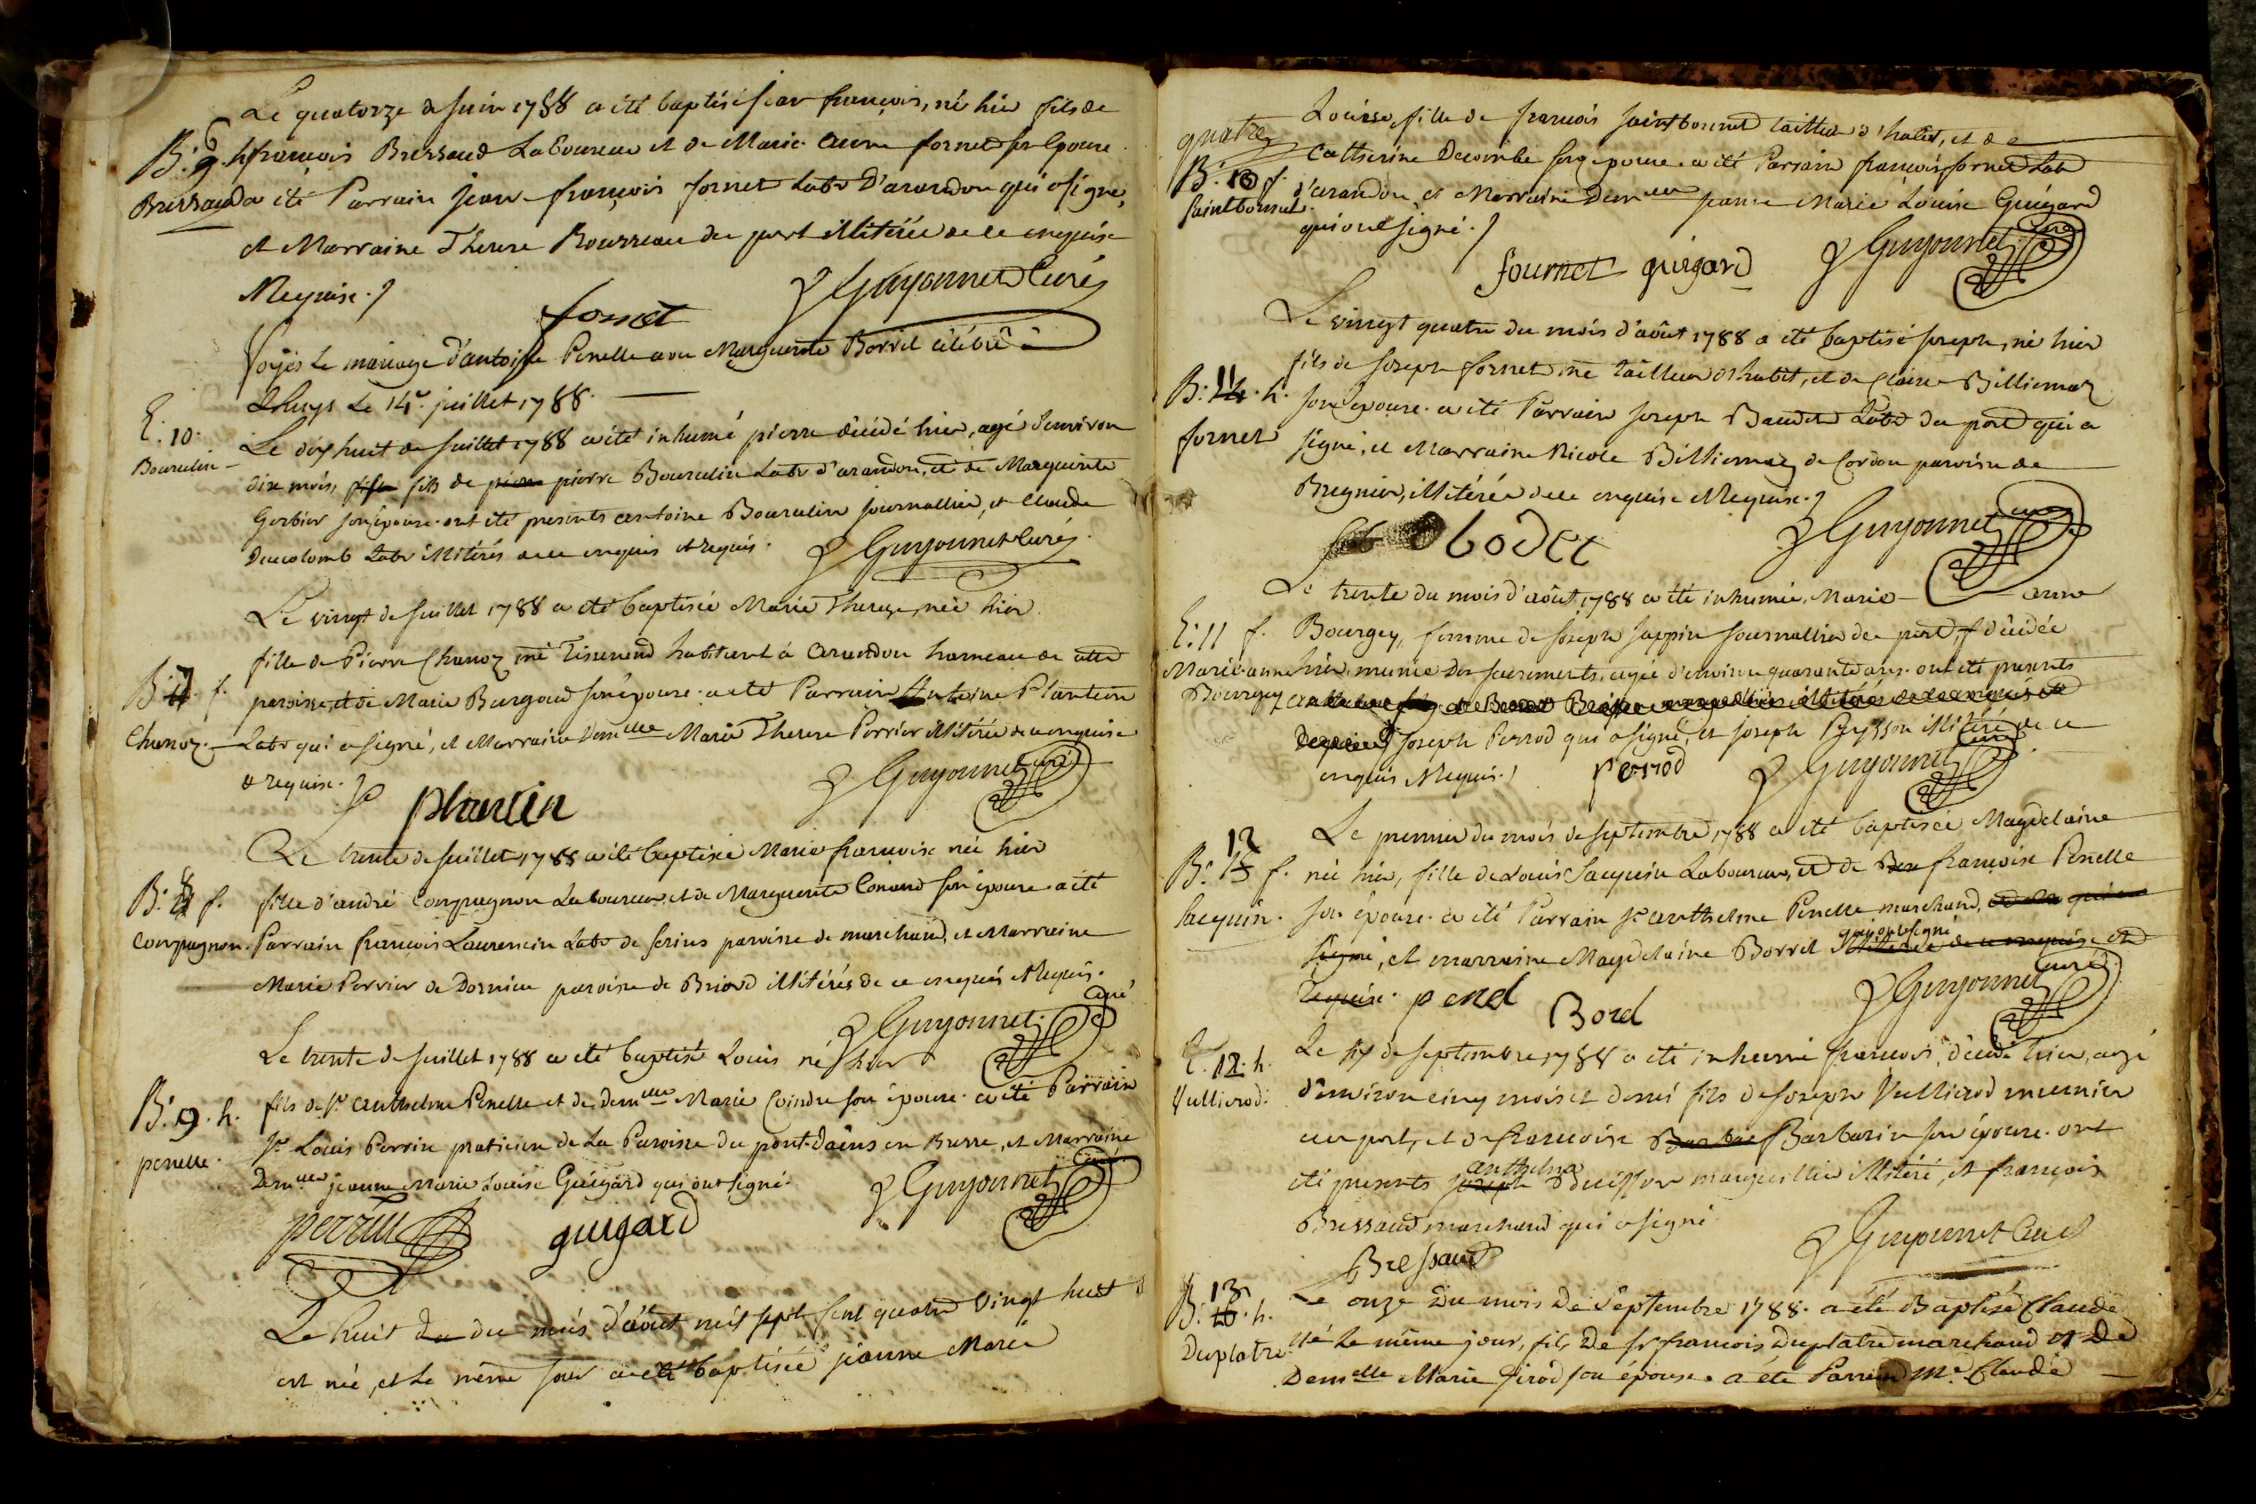 Le quatorze de Juin 1788 a été baptisé jean françois, né hier fils de
B. 6. h. françois Bressaud Laboureur et de Marie Anne fornet son Epouse.
Bressaud a été Parrain jean-françois fornet Labr D'arandon qui a signé,
et Marraine Therese Bourreau du port illitérée de ce enquise
et Requise.
fornet Guyonnet Curé
Voyés le mariage d'antoine Penelle avec Marguerite Borrel célébré à
Lhuys Le 14e. juillet 1788.
E. 10. Le dix huit de Juillet 1788 a été inhumé pierre décédé hier, agé d'environ
Bourcelin dix mois, fils de pierre Bourcelin Labr d'arandon, et de Marguerite
Gerbier son épouse. ont été presents antoine Bourcelin journallier, et Claude
Ducolomb Labr illitérés de ce enquis et requis. Guyonnet Curé
Le vingt de Juillet 1788 a été baptisée Marie Therese, née hier
fille de Pierre Chanoz me Tisserand habitant à arandon hameau de cette
B. 7. f. paroisse, et de Marie Burgoud son épouse. a été Parrain Antoine Plantin
Chanoz. Labr qui a signé, et Marraine demlle Marie Therese Perrier illitérée de ce enquise
et requise. Guyonnet curé
plantin
Le trente de Juillet 1788 a été baptisée Marie francoise née hier
B. 8 f. fille d'andré Compagnon Laboureur et de Marguerite Conand son épouse. a été
Compagnon. Parrain francois Laurencin Labr de serins paroisse de marchand, et Marraine
Marie Perrier de Dornieu paroisse de Briord illitérés de ce enquis et Requis.
Guyonnet curé
Le trente de Juillet 1788 a été baptisé Louis né hier
B. 9. h. fils de Sr anthelme Penelle et de demlle Marie Coindre son épouse. a été Parrain
penelle. Sr Louis Perrin praticien de La Paroisse du pont-dains en Bresse, et Marraine
Demlle jeanne Marie Louise Guigard qui ont signé. Guyonnet Curé
perrin guigard
Le huit du mois d'août mil sept cent quatre vingt huit
est née, et le même jour a été baptisée jeanne Marie
Louise, fille de francois saintbonnet tailleur d'habit, et de
quatre Catherine Decombe son epouse. a été Parrain françois fornet Lab
B. 10 f. d'arandon et Marraine Demlle jeanne Marie Louise Guigard
saintbonnet. qui ont signé.
fournet guigard Guyonnet Curé
Le vingt quatre du mois d'août 1788 a été baptisé joseph, né hier
fils de Joseph fornet me tailleur d'habit, et de Claire Billiemaz
B. 11. h. son épouse. a été Parrain joseph Baudet Labr du port qui a
fornet signé, et Marraine Nicole Billiemaz de Cordon paroisse de
Bregnier, illitérée de ce enquise et Requise.
bodet Guyonnet curé
Le trente du mois d'août 1788 a été inhumée, Marie-anne
E. 11 f. Bourgey, femme de Joseph Jappin journallier du port, décédée
Marie anne hier, munie des sacrements, agée d'environ quarante ans. ont été presents
Bourgey
Joseph Perrod qui a signé, et joseph Buysson illitéré de ce
enquis et Requis. perrod Guyonnet Curé
12 Le premier du mois de septembre 1788 a été baptisée Magdelaine
B. f. née hier, fille de Louis Jacquin Laboureur, et de françoise Penelle
Jacquin. son épouse. a été Parrain Sr anthelme Penelle marchand,
signé, et marraine Magdelaine Borrel qui ont signé
requise. penel Borel Guyonnet curé
E. 12. h. Le de septembre 1788 a été inhumé francois, décédé hier, agé
Vullierod. d'environ cinq mois et demi fils de Joseph Vullierod meunier
au port, et de francoise Barbarin son épouse. ont
été presents anthelme Buisson marguillier illitéré, et françois
Bressaud marchand qui a signé
Bressaud Guyonnet Curé
B. 13. h. Le onze Du mois De Septembre 1788. a été Baptisé Claude
Duplatre né Le même jour, fils De sr francois Duplatre marchand et De
Demlle Marie Girod son épouse. a été Parrein Me Claude